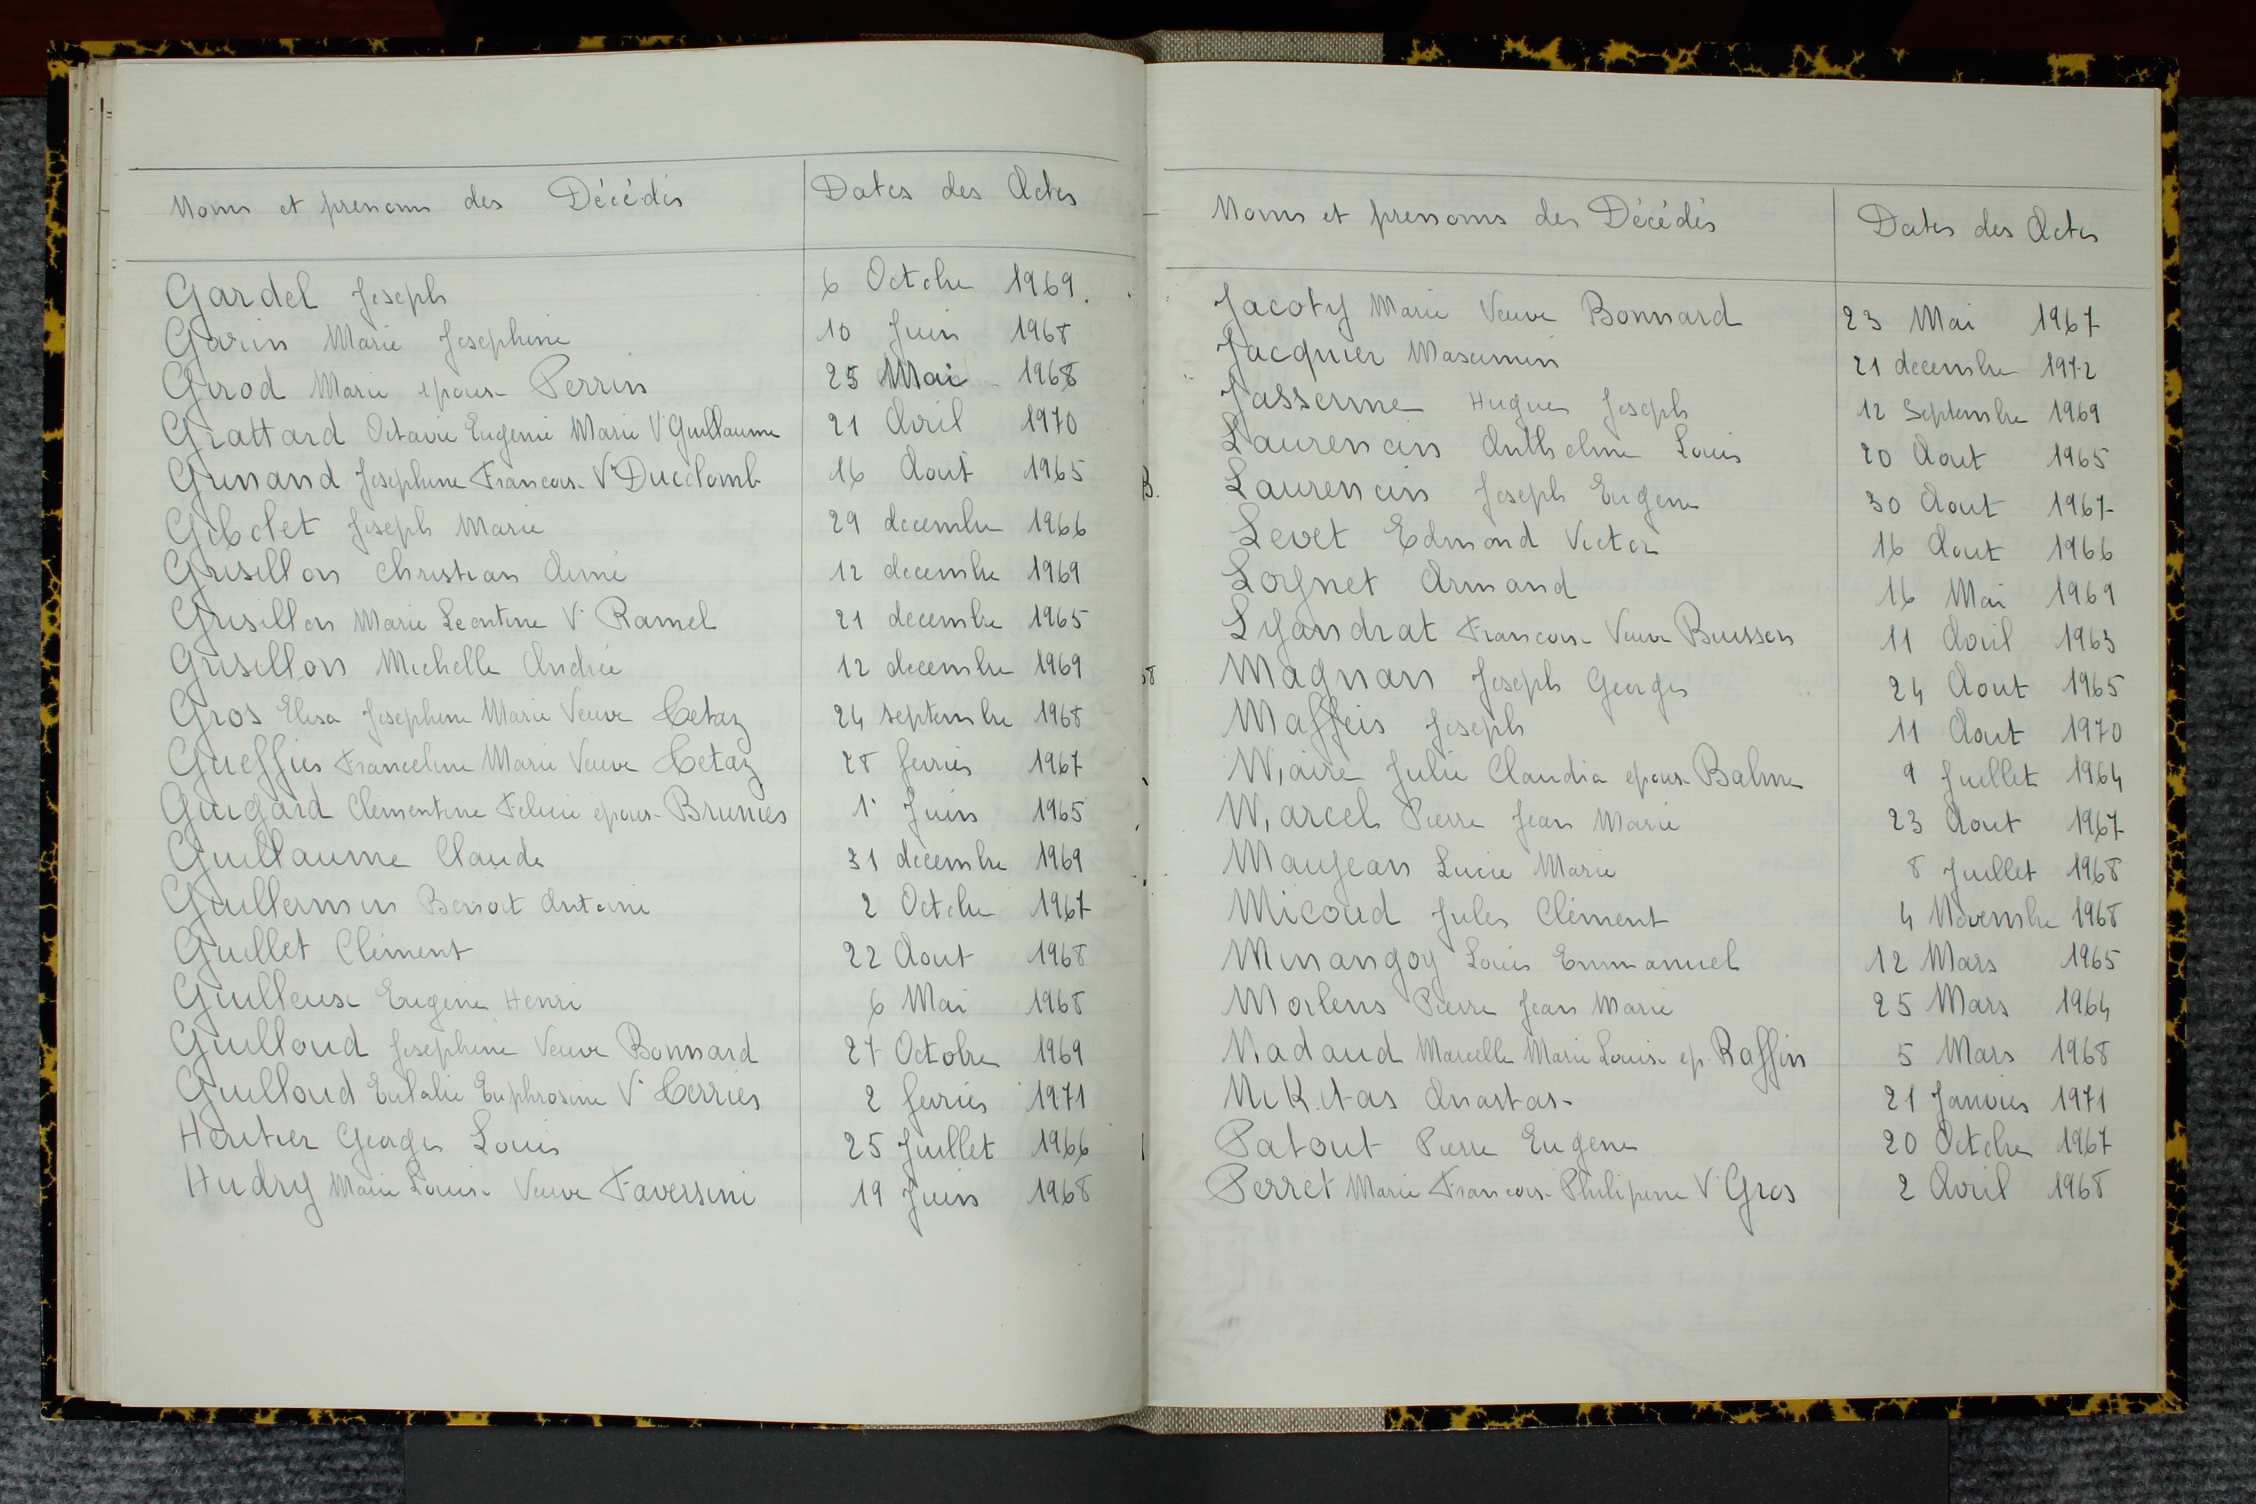 Noms et prenoms des Décédés Dates des Actes
Gardel Joseph 6 Octobre 1969.
Garin Marie Josephine 10 Juin 1968
Girod Marie epouse Perrin 25 Mai 1968
Grattard Octavie Eugenie Marie Vᵉ Guillaume 21 Avril 1970
Grinand Josephine Francoise Vᵉ Ducolomb 16 Aout 1965
Gibolet Joseph Marie 29 decembre 1966
Grisillon Christian Aimé 12 decembre 1969
Grisillon Marie Leontine Vᵉ Ramel 21 decembre 1965
Grisillon Michelle Andrée 12 decembre 1969
Gros Elisa Josephine Marie Veuve Cetaz 24 septembre 1968
Gueffier Franceline Marie Veuve Cetaz 28 fevrier 1967
Guigard Clementine Felicie epouse Brunier 1ᵉ Juin 1965
Guillaume Claude 31 décembre 1969
Guillermin Benoit Antoine 2 Octobre 1967
Guillet Clément 22 Aout 1968
Guilleux Eugène Henri 6 Mai 1968
Guilloud Josephine Veuve Bonnard 27 Octobre 1969
Guilloud Eulalie Euphrosine Vᵉ Cerrier 2 fevrier 1971
Heritier Georges Louis 25 Juillet 1966
Hudry Marie Louise Veuve Faversini 19 Juin 1968
Noms et prenoms des Décédés Dates des Actes
Jacoty Marie Veuve Bonnard 23 Mai 1967
Jacquier Maximin 21 decembre 1972
Jasserme Hugues Joseph 12 Septembre 1969
Laurencin Anthelme Louis 20 Aout 1965
Laurencin Joseph Eugene 30 Aout 1967
Levet Edmond Victor 16 Aout 1966
Loynet Armand 16 Mai 1969
Lyandrat Francoise Veuve Buisson 11 Avril 1963
Magnan Joseph Georges 24 Aout 1965
Maffeis Joseph 11 Aout 1970
Maire Julie Claudia epouse Balme 9 Juillet 1964
Marcel Pierre Jean Marie 23 Aout 1967
Maujean Lucie Marie 8 Juillet 1968
Micoud Jules Clément 4 Novembre 1968
Minangoy Louis Emmanuel 12 Mars 1965
Moilens Pierre Jean Marie 25 Mars 1964
Nadaud Marcelle Marie Louise ep. Raffin 5 Mars 1968
Nikitas Anastase 21 Janvier 1971
Patout Pierre Eugene 20 Octobre 1967
Perret Marie Francoise Philipine Vᵉ Gros 2 Avril 1968